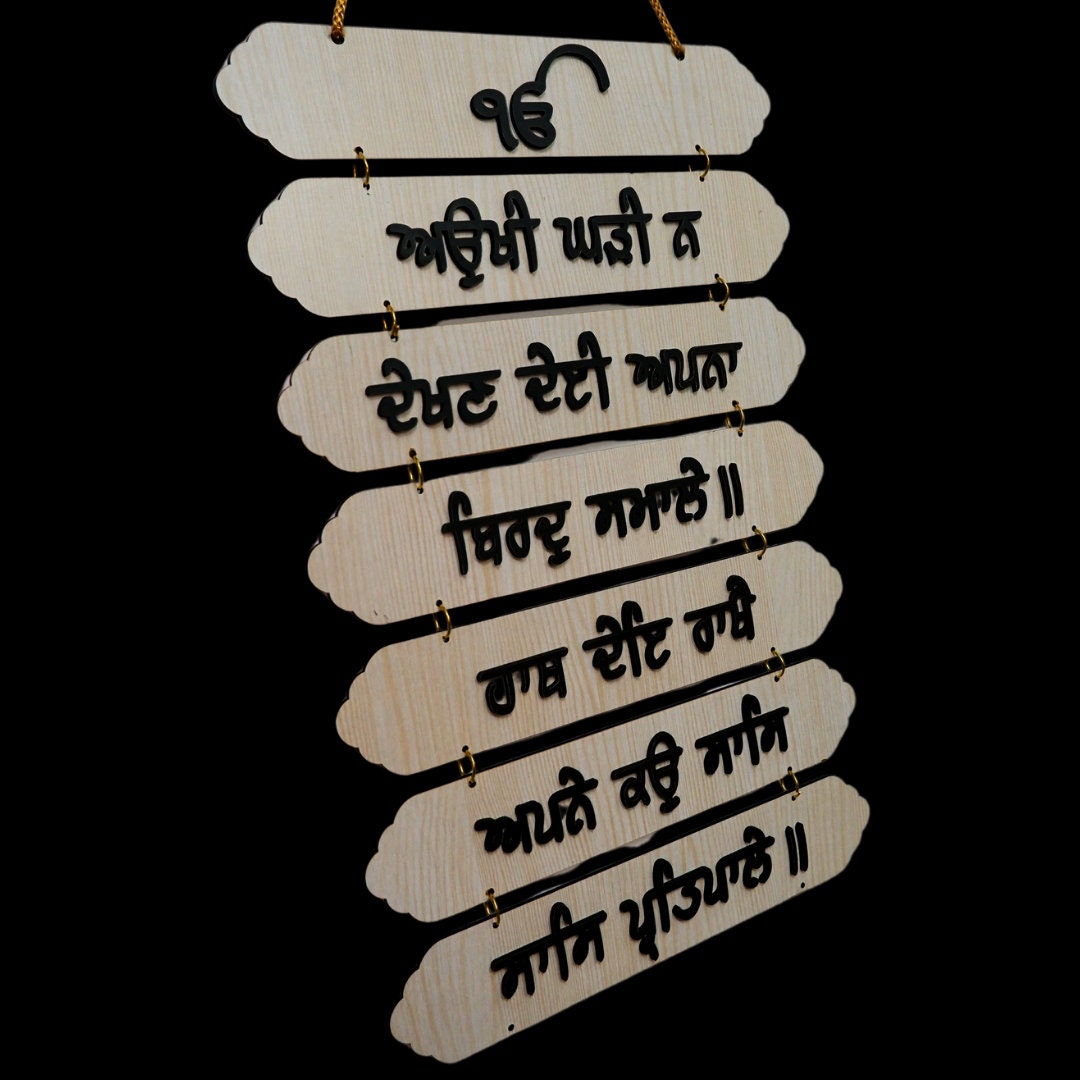 ੴ
ਅਉਖੀ ਘੜੀ ਨ
ਦੇਖਣ ਦੇਈ ਅਪਨਾ
ਬਿਰਦੁ ਸਮਾਲੇ॥
ਹਾਥ ਦੇਇ ਰਾਖੈ
ਅਪਨੇ ਕਉ ਸਾਸਿ
ਸਾਸਿ ਪ੍ਰਤਿਪਾਲੇ॥